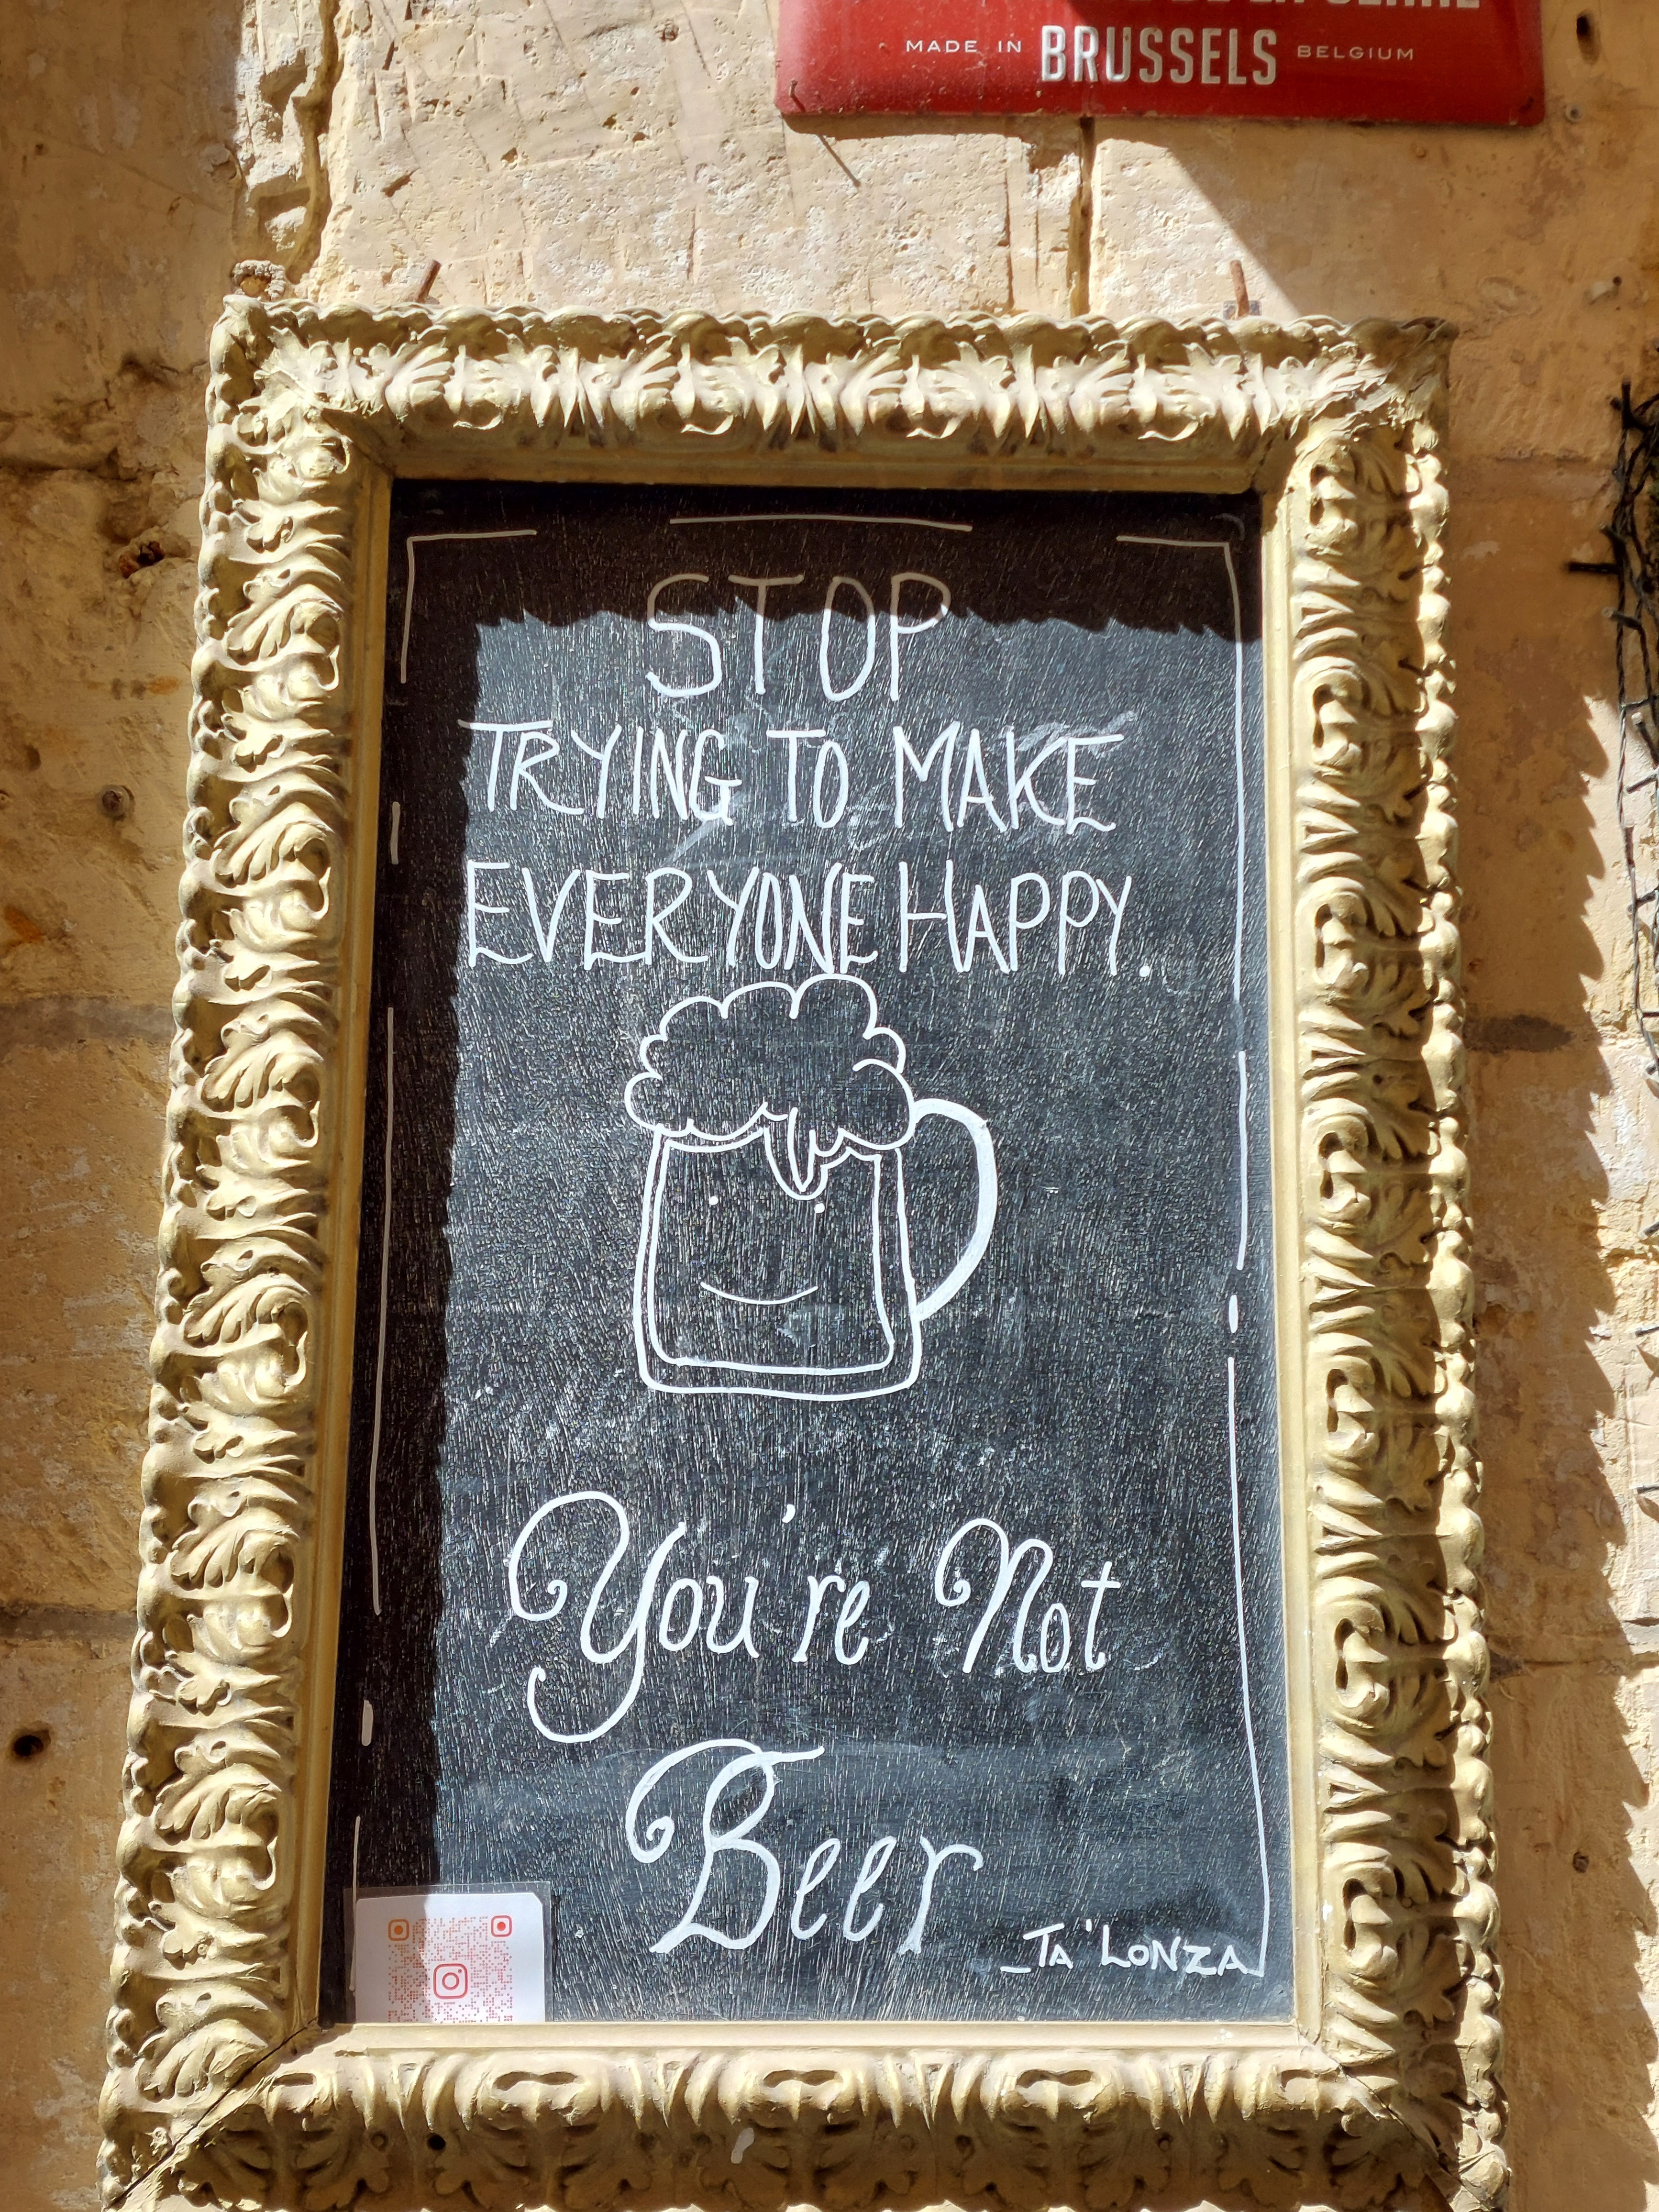 MADE IN BRUSSELS BELGIUM
STOP
TRYING TO MAKE
EVERYONE HAPPY.
You're Not
Beer
_TA 'LONZA